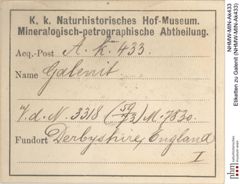 K. k. Naturhistorisches Hof-Museum.
Mineralogisch-petrographische Abtheilung.
Acq.-Post A. k. 433.
Name Galenit.
d. N. 3318 M. 7830.
Fundort Derbyshire, England
I
NHMW-MIN-Ak433
Etiketten zu Galenit (NHMW-MIN-Ak433)
nhm